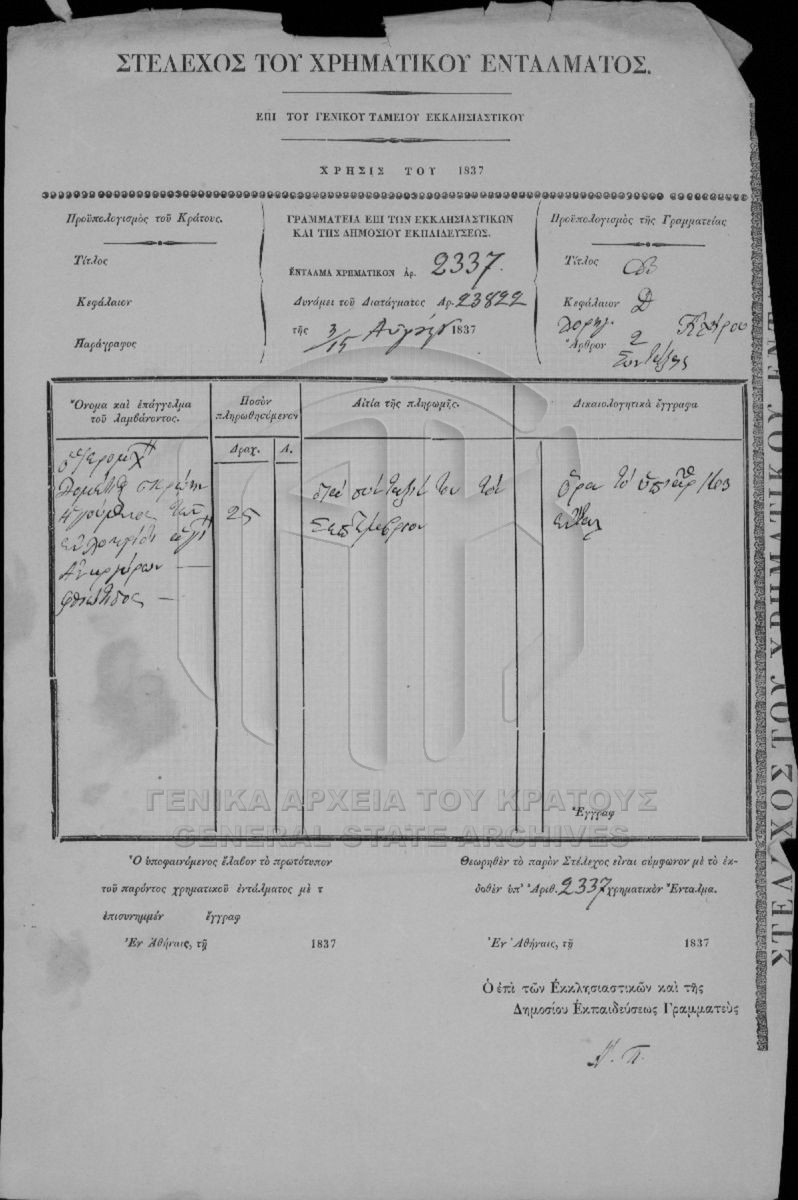 ΣΤΕΛΕΧΟΣ ΤΟΥ ΧΡΗΜΑΤΙΚΟΥ ΕΝΤΑΛΜΑΤΟΣ.
ΕΠΙ ΤΟΥ ΓΕΝΙΚΟΥ ΤΑΜΕΙΟΥ ΕΚΚΛΗΣΙΑΣΤΙΚΟΥ
ΧΡΗΣΙΣ ΤΟΥ 1837
Προϋπολογισμὸς τοῦ Κράτους.
Τίτλος
Κεφάλαιον
Παράγραφος
ΓΡΑΜΜΑΤΕΙΑ ΕΠΙ ΤΩΝ ΕΚΚΛΗΣΙΑΣΤΙΚΩΝ
ΚΑΙ ΤΗΣ ΔΗΜΟΣΙΟΥ ΕΚΠΑΙΔΕΥΣΕΩΣ.
ΕΝΤΑΛΜΑ ΧΡΗΜΑΤΙΚΟΝ ΑΡ. 2337.
Δυνάμει τοῦ Διατάγματος Ἀρ. 23822
τῆς 3/15 1837
Προϋπολογισμὸς τῆς Γραμματείας
Τίτλος
Κεφάλαιον Δ
Ἄρθρον 2
Ὄνομα καὶ ἐπάγγελμα
τοῦ λαμβάνοντος.
Ποσὸν
πληρωθησόμενον
Δραχ. Λ.
Αἰτία τῆς πληρωμῆς.
Δικαιολογητικὰ ἔγγραφα
Ἀναργύρων
Φθιώτιδος
25
διὰ σύνταξίν του τοῦ
Σεπτεμβρίου
Ὅρα τὸ ὑπ' ἀρ 1603
Ἔγγραφ
ΓΕΝΙΚΑ ΑΡΧΕΙΑ ΤΟΥ ΚΡΑΤΟΥΣ
GENERAL STATE ARCHIVES
Ὁ ὑποφαινόμενος ἔλαβον τὸ πρωτότυπον
τοῦ παρόντος χρηματικοῦ ἐντάλματος μὲ τ
ἐπισυνημμέν ἔγγραφ
Ἐν Ἀθήναις, τῇ 1837
Θεωρηθὲν τὸ παρὸν Στέλεχος εἶναι σύμφωνον μὲ τὸ ἐκ-
δοθὲν ὑπ' Ἀριθ. 2337 χρηματικὸν Ἔνταλμα.
Ἐν Ἀθήναις, τῇ 1837
Ὁ ἐπὶ τῶν Ἐκκλησιαστικῶν καὶ τῆς
Δημοσίου Ἐκπαιδεύσεως Γραμματεὺς